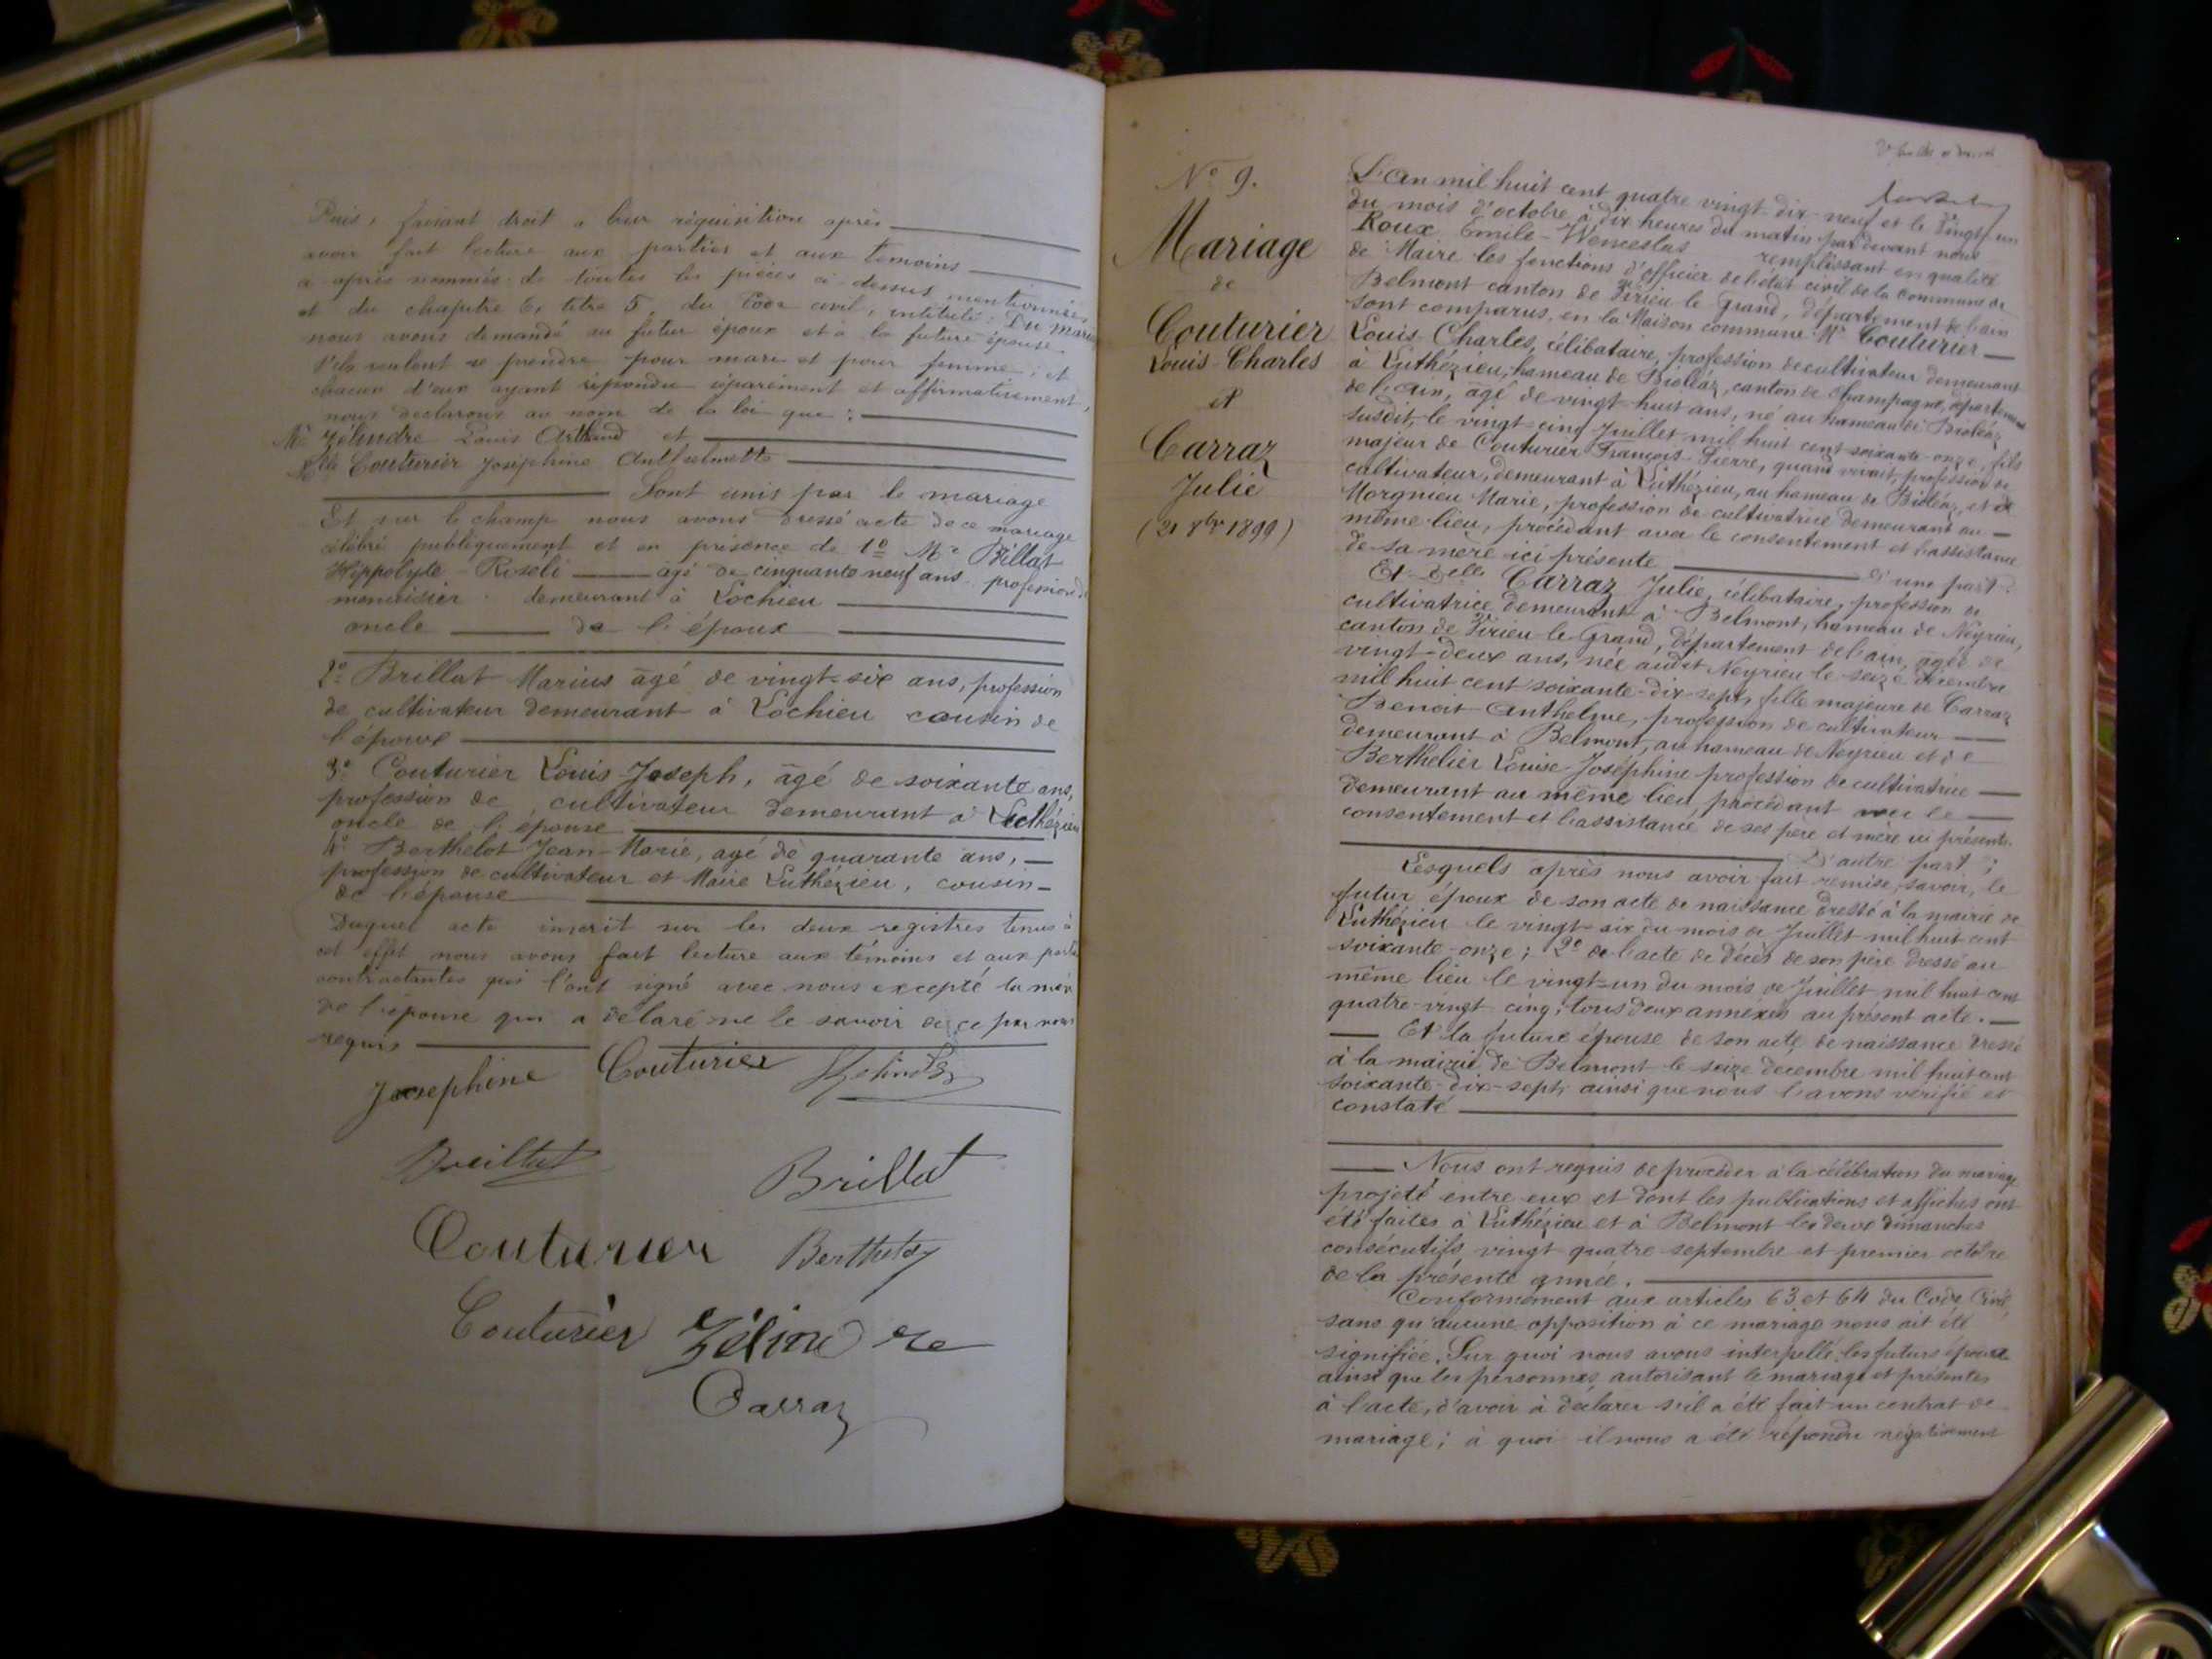 Puis, faisant droit à leur réquisition après
avoir fait lecture aux parties et aux témoins
ci après nommés de toutes les pièces ci-dessus mentionnées
et du chapitre 6, titre 5, du Code civil, intitulé: Du Mariage
nous avons demandé au futur époux et à la future épouse
s'ils veulent se prendre pour mari et pour femme; et
chacun d'eux ayant répondu séparément et affirmativement,
nous déclarons au nom de la loi que:
Mr Zélindre Louis Arthaud et
Mlle Couturier Joséphine Anthelmette
Sont unis par le mariage
Et sur le champ nous avons dressé acte de ce mariage
célébré publiquement et en présence de 1º Mr Billat
Hippolyte-Roseli âgé de cinquante neuf ans profession de
menuisier demeurant à Lochieu
oncle de l'époux
2º Brillat Marius âgé de vingt-six ans, profession
de cultivateur demeurant à Lochieu cousin de
l'époux
3º Couturier Louis-Joseph, âgé de soixante ans,
profession de cultivateur demeurant à Luthézieu
oncle de l'épouse
4º Berthelot Jean-Marie, âgé de quarante ans,
profession de cultivateur et Maire Luthézieu, cousin
de l'épouse
Duquel acte inscrit sur les deux registres tenus à
cet effet nous avons fait lecture aux témoins et aux parties
contractantes qui l'ont signé avec nous excepté la mère
de l'épouse qui a délaré ne le savoir de ce par nous
requis
Josephine Couturier
Brillat
Couturier Berthelot
Couturier Zélindre
Carraz
Nº 9.
Mariage
de
Couturier
Louis-Charles
et
Carraz
Julie
(21 8bre 1899)
L'an mil huit cent quatre vingt-dix-neuf et le vingt-un
du mois d'octobre à dix heures du matin par devant nous
Roux Emile-Wenceslas remplissant en qualité
de Maire les fonctions d'officier de l'état civil de la commune de
Belmont canton de Virieu-le-Grand, département de l'ain
sont comparus, en la Maison commune Mr Couturier
Louis-Charles, célibataire, profession de cultivateur demeurant
à Luthézieu, hameau de Bioléaz, canton de Champagne, département
de l'ain, âgé de vingt-huit ans, né au hameau de Bioléaz
susdit, le vingt-cinq Juillet mil huit cent soixante-onze, fils
majeur de Couturier François-Pierre, quand vivait, profession de
cultivateur, demeurant à Luthézieu, au hameau de Bioléaz, et de
Morgnieu Marie, profession de cultivatrice demeurant au
même lieu, procédant avec le consentement et l'assistance
de sa mère ici présente d'une part.
Et Delle Carraz Julie, célibataire, profession de
cultivatrice demeurant à Belmont, hameau de Neyrieu,
canton de Virieu-le-Grand, département de l'ain, âgée de
vingt-deux ans, née audit Neyrieu le seize décembre
mil huit cent soixante-dix-sept, fille majeure de Carraz
Benoit Anthelme, profession de cultivateur
demeurant à Belmont, au hameau de Neyrieu et de
Berthelier Louise-Joséphine profession de cultivatrice
demeurant au même lieu, procédant avec le
consentement et l'assistance de ses père et mère ici présents.
D'autre part;
Lesquels après nous avoir fait remise, savoir, le
futur époux de son acte de naissance dressé à la mairie de
Luthézieu le vingt-six du mois de Juillet mil huit cent
soixante-onze; 2º de l'acte de décès de son père dressé au
même lieu le vingt-un du mois de Juillet mil huit cent
quatre-vingt cinq; tous deux annexés au présent acte.
Et la future épouse de son acte de naissance dressé
à la mairie de Belmont le seize décembre mil huit cent
soixante-dix-sept, ainsi que nous l'avons vérifié et
constaté
Nous ont requis de procéder à la célébration du mariage
projeté entre eux et dont les publications et affiches ont
été faites à Luthézieu et à Belmont les deux dimanches
consécutifs vingt quatre septembre et premier octobre
de la présente année.
Conformément aux articles 63 et 64 du Code Civil,
sans qu'aucune opposition à ce mariage nous ait été
signifiée. Sur quoi nous avons interpellé les futurs époux
ainsi que les personnes autorisant le mariage et présentes
à l'acte, d'avoir à déclarer s'il a été fait un contrat de
mariage; à quoi il nous a été répondu négativement